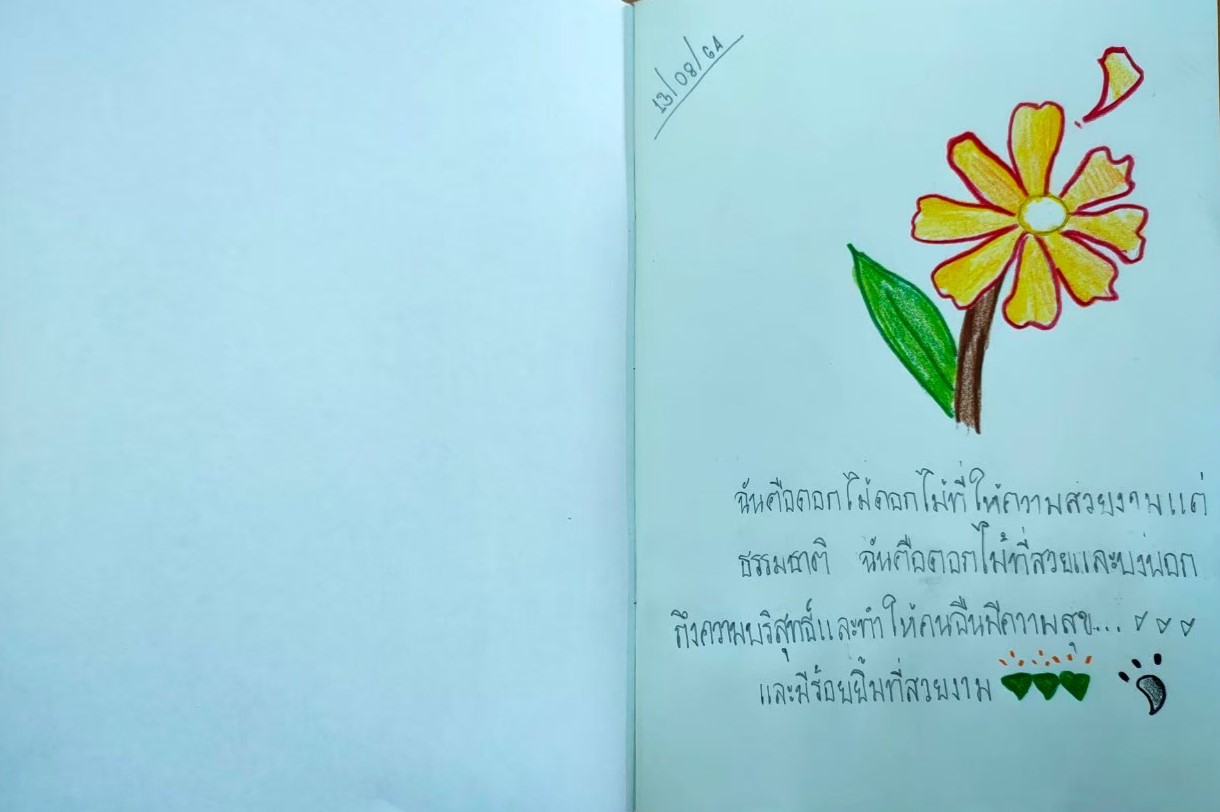 13/08/64
ฉันคือดอกไม้ดอกไม้ที่ให้ความสวยงามแด่
ธรรมชาติ ฉันคือดอกไม้ที่สวยและบ่งบอก
ถึงความบริสุทธิ์และทำให้คนอื่นมีความสุข...
และมีร้อยยิ้มที่สวยงาม